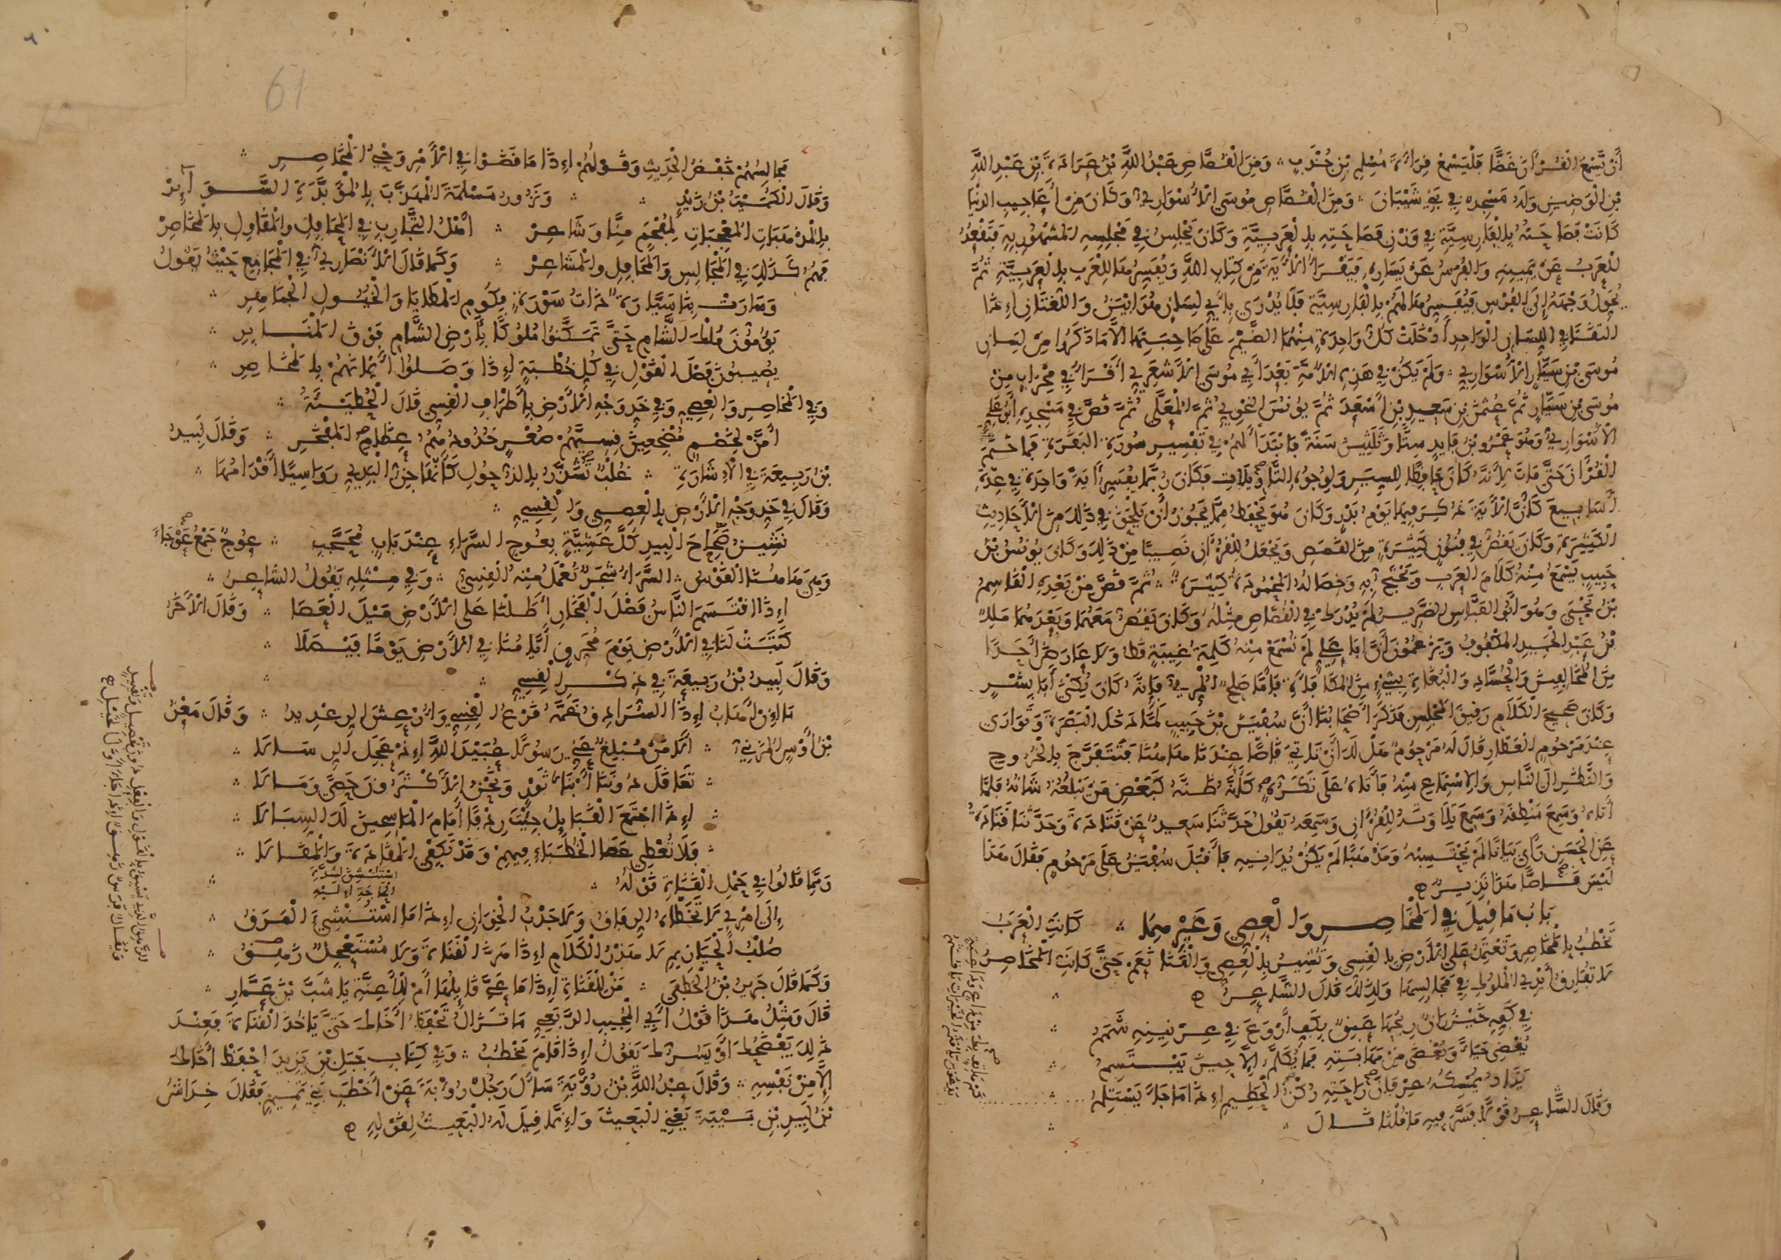 أن تسمع القرآن غضا فليسمع قراءة مسلم بن جندب ومن القصاص عبد الله بن عرادة بن عبد الله
بن الوضين وله مسجد في بني شيبان ومن القصاص موسى الأسواري وكان من أعاجيب الدنيا
كانت فصاحته بالفارسية في وزن فصاحته بالعربية وكان يجلس في مجلسه المشهور به فتقعد
العرب عن يمينه والفرس عن يساره فيقرأ الآية من كتاب الله ويفسرها للعرب بالعربية ثم
يحول وجهه إلى الفرس فيفسرها لهم بالفارسية فلا يدرى بأي لسان هو أبين واللغتان إذا
التقتا في اللسان الواحد أدخلت كل واحدة منهما الضيم على صاحبتها إلا ما ذكروا من لسان
موسى بن سيار الأسواري ولم يكن في هذه الأمة بعد أبي موسى الأشعري أقرأ في محراب من
موسى بن سيار ثم عثمان بن سعيد بن أسعد ثم يونس النحوي ثم المعلى ثم قص في مسجده أبو علي
الأسواري وهو عمرو بن فايد ستا وثلثين سنة فابتدأ لهم في تفسير سورة البقرة فما ختم
القرآن حتى مات لأنه كان حافظا للسير ولوجوه التأويلات فكان ربما يفسر آية واحدة في عدة
أسابيع كأن الآية ذكر فيها يوم بدر وكان هو يحفظ مما يجوز أن يلحق في ذلك من الأحاديث
الكثيرة وكان يقص في فنون كثيرة من القصص ويجعل للقرآن نصيبا من ذلك وكان يونس بن
حبيب يسمع منه كلام العرب ويحتج به وخصاله المحمودة كثيرة ثم قص من بعده القاسم
بن يحيى وهو أبو العباس الضرير لم يدرك في القصاص مثله وكان يقص معهما وبعدهما مالك
بن عبد الحميد المكفوف ويزعمون أن أبا علي لم تسمع منه كلمة غيبة قط ولا عارض أحدا
من المخالفين والحساد والبغاة بشيء من المكافأة فأما صالح المري فإنه كان يكنى أبا بشر
وكان صحيح الكلام رقيق المجلس فذكر أصحابنا أن سفين بن حبيب لما دخل البصرة وتوارى
عند مرحوم العطار قال له مرحوم هل لك أن تأتي قاصا عندنا هاهنا فتتفرج بالخروج
والنظر إلى الناس والاستماع منه فأتاه على تكره كأنه ظنه كبعض من يبلغه شأنه فلما
أتاه وسمع منطقه وسمع تلاوته للقرآن وسمعه يقول حدثنا سعيد عن قتادة وحدثنا قتادة
عن الحسن رأى بيانا لم يحتسبه ومذهبا لم يكن يدانيه فأقبل سفين على مرحوم فقال هذا
ليس قاصا هذا نذير
باب ما قيل في المخاصر والعصي وغيرهما كانت العرب
تخطب بالمخاصر وتعتمد على الأرض بالقسي وتشير بالعصي والقنا نعم حتى كانت المخاصر
لا تفارق أيدي الملوك في مجالسها ولذلك قال الشاعر
في كفه خيزران ريحها عبق بكف أروع في عرنينه شمم
يغضي حياء ويغضى من مهابته فما يكلم إلا حين يبتسم
يكاد يمسكه عرفان راحته ركن الحطيم إذا ما جاء يستلم
وقال الشاعر قولا فسر فيه ما قلنا قال
مجالسهم خفض الحديث وقولهم إذا ما قضوا في الأمر وحي المخاصر
وقال الكميت بن زيد ونزور مسلمة المهذب بالمؤبدة السوائر
بالمذهبات المعجبات لمفحم منا وشاعر أهل التجارب في المحافل والمقاول بالمخاصر
فهم كذلك في المجالس والمحافل والمشاعر وكما قال الأنصاري في المجامع حيث يقول
وسارت بنا سيارة ذات سورة بكوم المطايا والخيول الجماهر
يؤمون ملك الشام حتى تمكنوا ملوكا بأرض الشام فوق المنابر
يصيبون فصل القول في كل خطبة إذا وصلوا أيمانهم بالمخاصر
وفي المخاصر والعصي وفي خد وجه الأرض بأطراف القسي قال الحطيئة
أم من لخصم مضجعين قسيهم صعر خدودهم عظام المفخر وقال لبيد
بن ربيعة في الإشارة غلب تشذر بالذحول كأنها جن البدي رواسيا أقدامها
وقال في خد وجه الأرض بالعصي والقسي
نشين صحاح البيد كل عشية بعوج السراء عند باب محجب عوج جمع عوجاء
وهي هاهنا القوس السراء شجر تعمل منه القسي وفي مثله يقول الشاعر
إذا اقتسم الناس فضل الفخار أطلنا على الأرض ميل العصا وقال الآخر
كتبت لنا في الأرض يوم محرق أيامنا في الأرض يوما فيصلا
وقال لبيد بن ربيعة في ذكر القسي
ما إن أهاب إذا السرادق غمه قرع القسي وأرعش الرعديد وقال معن
بن أوس المزني ألا من مبلغ عني رسولا عبيد الله إذ عجل الرسالا
تعاقل دوننا أبناء ثور ونحن الأكثرون حصى ومالا
إذا اجتمع القبائل جئت ردفا أمام الماسحين لك السبالا
فلا تعطى عصا الخطباء فيهم وقد تكفى المقادة والمقالا
ومما قالوا في حمل القناة قوله
إلى امرئ لا تخطاه الرفاق ولا جدب الخوان إذا ما استنشئ المرق
صلب الحيازيم لا هذر الكلام إذا هز القناة ولا مستعجل زهق
وكما قال جرير بن الخطفى من للقناة إذا ما عي قايلها أم للأعنة يا شب بن عمار
قال ومثل هذا قول أبي المجيب الربعي ما تزال تحفظ أخاك حتى يأخذ القناة فعند
ذلك يفضحك أو يسرك يقول إذا قام يخطب وفي كتاب جبل بن يزيد احفظ أخاك
إلا من نفسه وقال عبد الله بن رؤبة سأل رجل رؤبة عن أخطب بني تميم فقال خداش
بن لبيد بن بيبة يعني البعيث وإنما قيل له البعيث لقوله
61